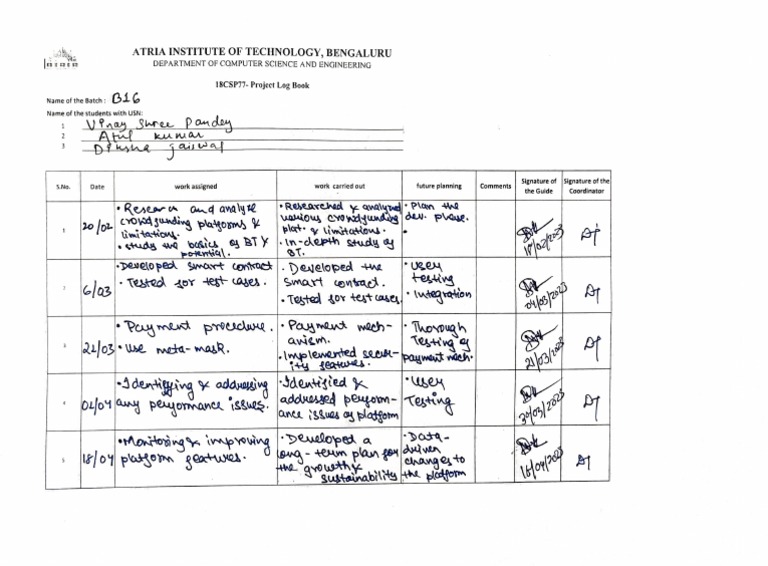 ATRIA INSTITUTE OF TECHNOLOGY, BENGALURU
DEPARTMENT OF COMPUTER SCIENCE AND ENGINEERING
18CSP77- Project Log Book
Name of the Batch : B16
Name of the students with USN:
1 Vinay Shree Pandey
2 Atul Kumar
3 Jaiswal
S.No. Date work assigned work carried out future planning Comments Signature of the Guide Signature of the Coordinator
1 20/02 • Research and analyze crowdfunding platforms & limitations. • Study the basics of BT & potential. • Researched & analyzed various crowdfunding plat. & limitations. • In-depth study of BT. • Plan the dev. phase. • 18/02/2023
2 6/03 • Developed smart contract • Tested for test cases. • Developed the smart contract. • Tested for test cases. • User testing • Integration 04/03/2023
3 22/03 • Payment procedure. • Use meta-mask. • Payment mech-anism. • Implemented secur-ity features. • Thorough Testing of payment mech. 21/03/2023
4 01/04 • Identifying & addressing any performance issues. • Identified & addressed perform-ance issues of platform • User Testing 30/03/2023
5 18/04 • Monitoring & improving platform features. • Developed a long-term plan for the growth & sustainability • Data-driven changes to the platform 18/04/2023